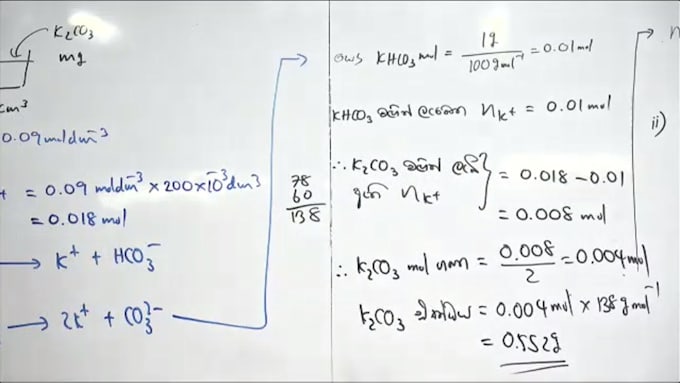 K₂CO₃
mg
cm³
0.09 moldm⁻³
+ = 0.09 moldm⁻³ × 200×10⁻³dm³
= 0.018 mol
→ K⁺ + HCO₃⁻
→ 2K⁺ + CO₃²⁻
78
60
138
KHCO₃ mol = 1g / 100gmol⁻¹ = 0.01mol
KHCO₃ මගින් ලැබෙන n K+ = 0.01 mol
∴ K₂CO₃ මගින්
n K+ } = 0.018 − 0.01
= 0.008 mol
∴ K₂CO₃ mol ගණන = 0.008 / 2 = 0.004 mol
K₂CO₃ ස්කන්ධය = 0.004 mol × 138 g mol⁻¹
= 0.552g
n
ii)